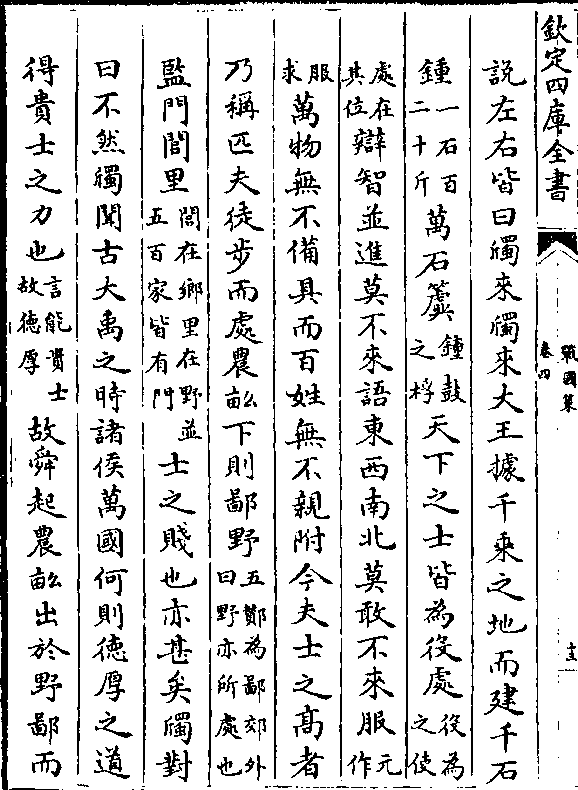 欽定四庫全書
戰國策
卷四
十三
說左右皆曰斶來斶來大王據千乘之地而建千石
鍾一石百二十斤萬石簴鍾鼓之桴天下之士皆為役處役為之使
處在其位辯智並進莫不來語東西南北莫敢不來服元作
服求萬物無不備具而百姓無不親附今夫士之高者
乃稱匹夫徒步而處農畝下則鄙野五鄭為鄙郊外曰野亦所處也
監門閭里閭在鄉里在野並五百家皆有門士之賤也亦甚矣斶對
曰不然斶聞古大禹之時諸侯萬國何則德厚之道
得貴士之力也言能貴士故德厚故舜起農畝出於野鄙而